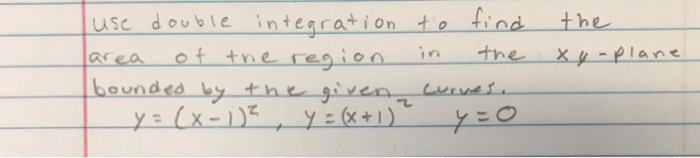 use double integration to find the
area of the region in the xy-plane
bounded by the given curves.
y = (x-1)², y = (x+1)² y = 0